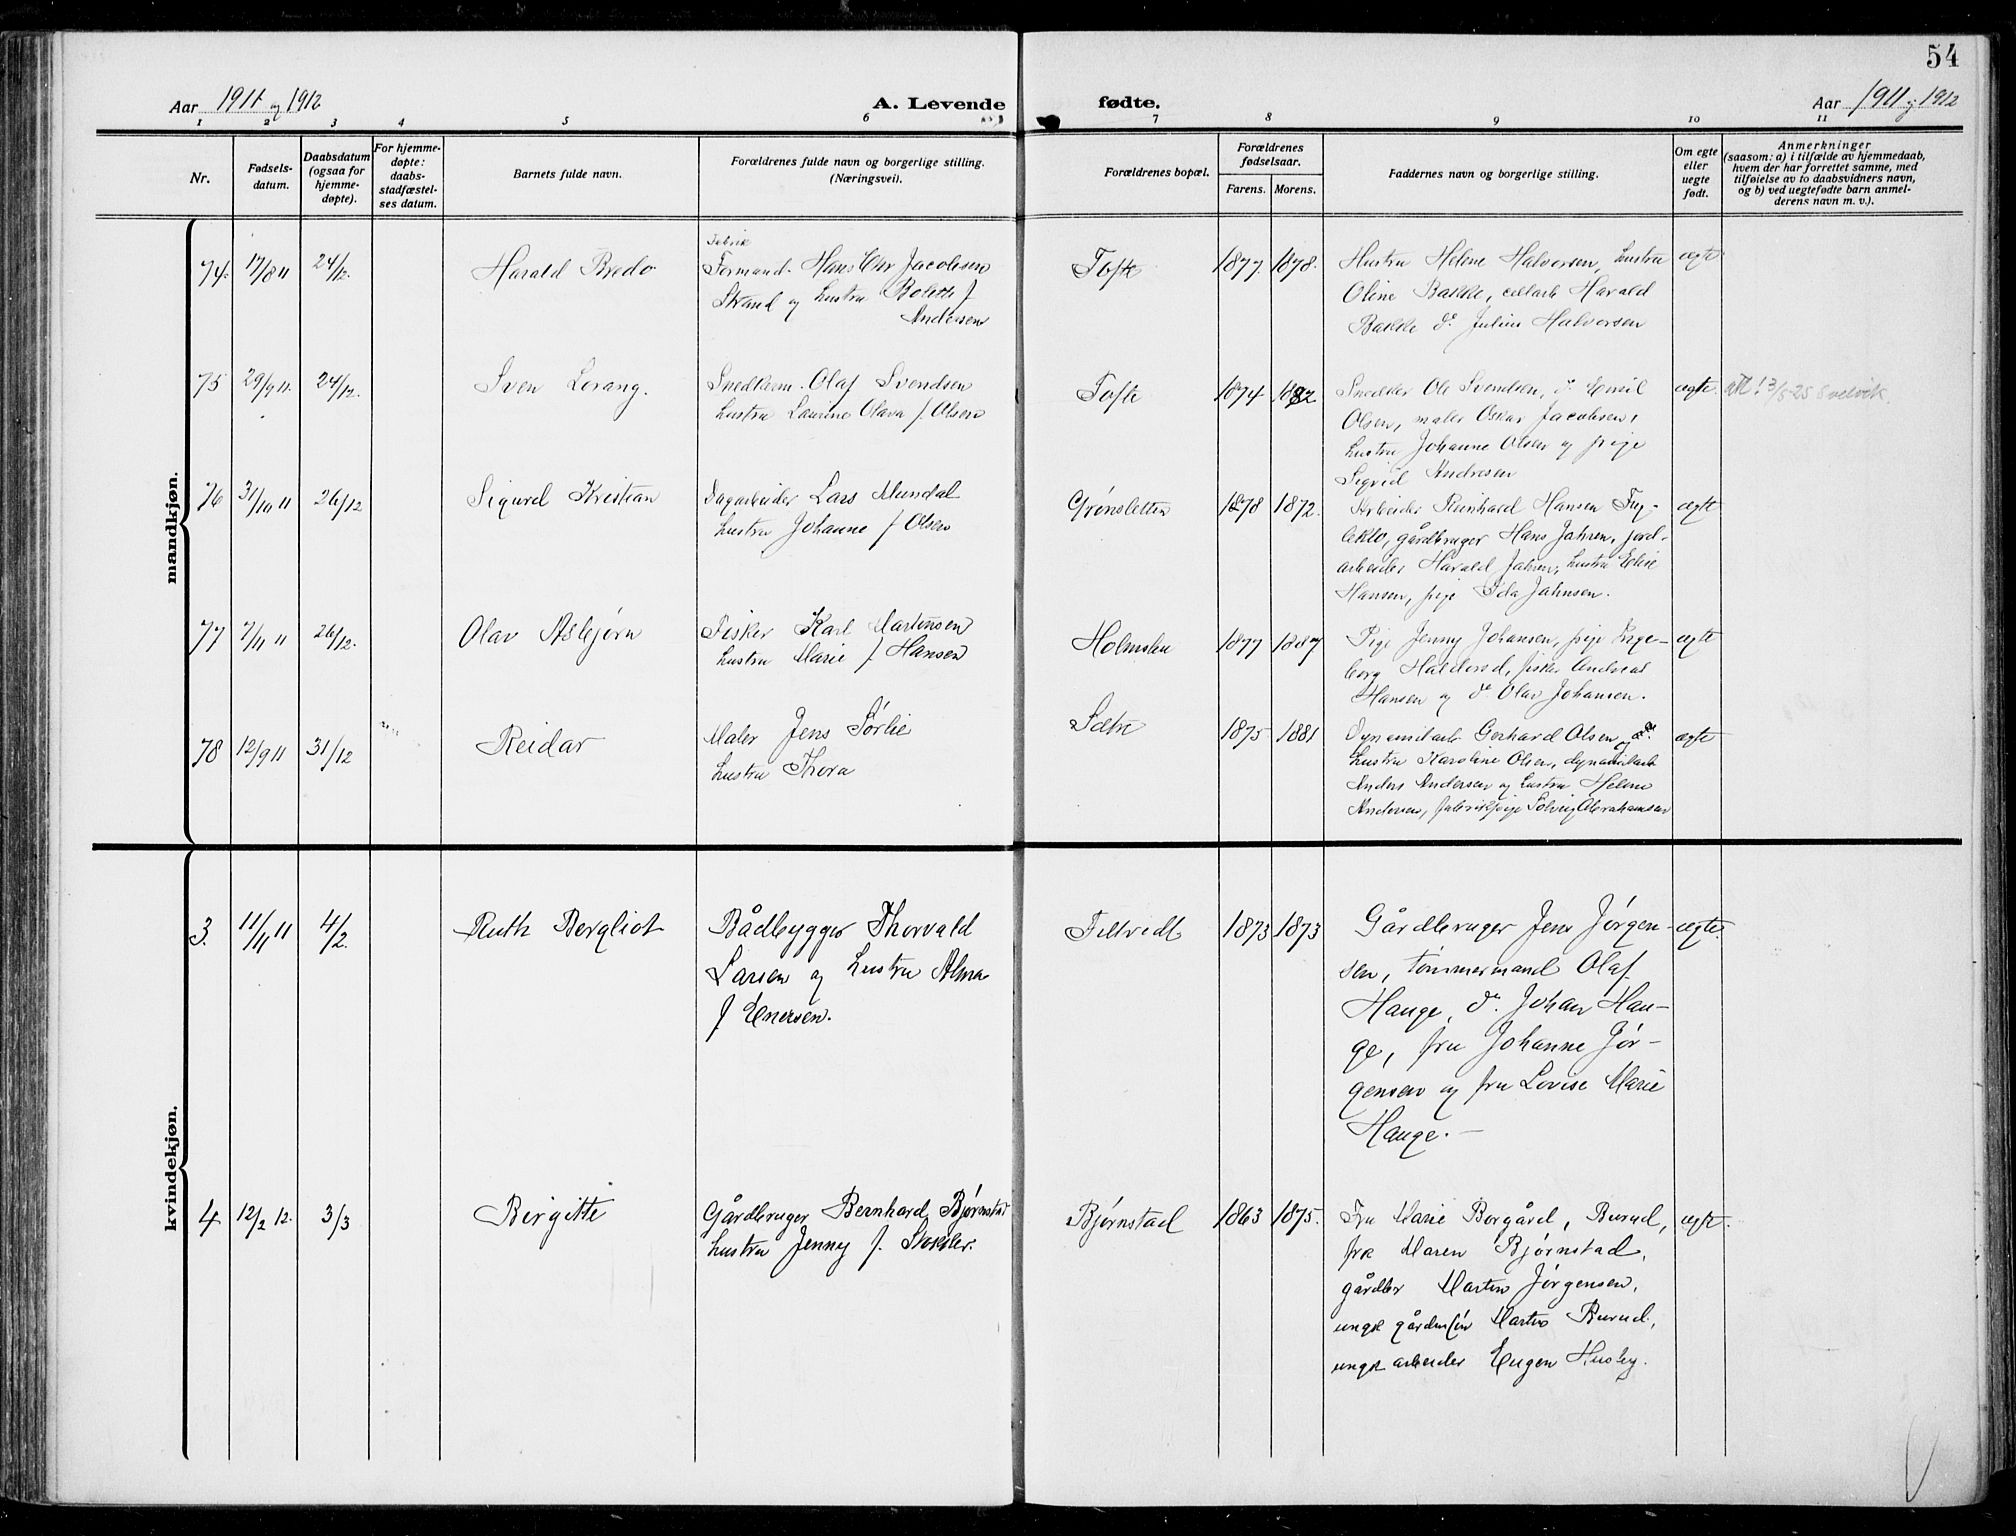 54
Aar 1911 og 1912
A. Levende fødte.
Aar 1911 og 1912
1 2 3 4 5 6 7 8 9 10 11
Nr.
Fødsels-
datum.
Daabsdatum
(ogsaa for
hjemme-
døpte).
For hjemme-
døpte:
daabs-
stadfæstel-
ses datum.
Barnets fulde navn.
Forældrenes fulde navn og borgerlige stilling.
(Næringsvei).
Forældrenes bopæl.
Forældrenes
fødselsaar.
Farens. Morens.
Faddernes navn og borgerlige stilling.
Om egte
eller
uegte
født.
Anmerkninger
(saasom: a) i tilfælde av hjemmedaab,
hvem der har forrettet samme, med
tilføielse av to daabsvidners navn,
og b) ved uegtefødte barn anmel-
derens navn m. v.).
mandkjøn.
74. 17/8 11 24/12. Harald Bredo
Fabrik
Formand Hans Chr Jacobsen
Strand og hustru Bolette f
Andersen
Tofte 1877 1878.
Hustru Helene Halvorsen, hustru
Oline Bakke, cellarb Harald
Bakke do Julius Halvorsen
ægte
75 29/9 11. 24/12. Sven Lorang.
Snedkerm. Olaf Svendsen
hustru Laurine Olava f. Olsen
Tofte 1874 1882
Snedker Ole Svendsen, do Emil
Olsen, maler Oskar Jacobsen,
hustru Johanne Olsen og pige
Sigrid Andresen
ægte. att 13/5-25 Svelvik.
76 31/10 11 26/12 Sigurd Kristian
Dagarbeider Lars Mundal
hustru Johanne f Olsen
Grønsletten 1878 1872.
Arbeider Reinhard Hansen Fug-
lekto, gårdbruger Hans Jahren, jord-
arbeider Harald Jahren, hustru Elise
Hansen, pige Ida Jahnsen.
ægte
77 7/11 11 26/12. Olav Asbjørn
Fisker Karl Martinsen
hustru Marie f Hansen
Holmslie 1877 1887
Pige Jenny Johansen, pige Inge-
borg Haldorsd, fisker Andreas
Hansen og do Olav Johansen.
ægte
78 12/9 11 31/12 Reidar
Maler Jens Sørlie
hustru Thora
Sætre 1875 1881
Dynamitarb Gerhard Olsen og
hustru Karoline Olsen, dynamitarb
Anders Andersen og hustru Helene
Andersen, fabrikpige Solveig Abrahamsen
ægte
kvindekjøn.
3. 11/11 11 4/2. Ruth Bergliot
Bådbygger Thorvald
Larsen og hustru Alma
f Enersen.
Filtvedt 1873 1873
Gårdbruger Jens Jørgen-
sen, tømmermand Olaf
Hauge, do Johan Hau-
ge, fru Johanne Jør-
gensen og fru Lovise Marie
Hauge. —
ægte.
4 12/2 12. 3/3 Birgitte
Gårdbruger Bernhard Bjørnstad
hustru Jenny f.
Bjørnstad 1863 1875.
Fru Marie Borgård, Burud,
frk Maren Bjørnstad,
gårdbr Martin Jørgensen,
ungk gårdmsøn Martin Burud,
ungk arbeider Eugen Husby.
ægte.